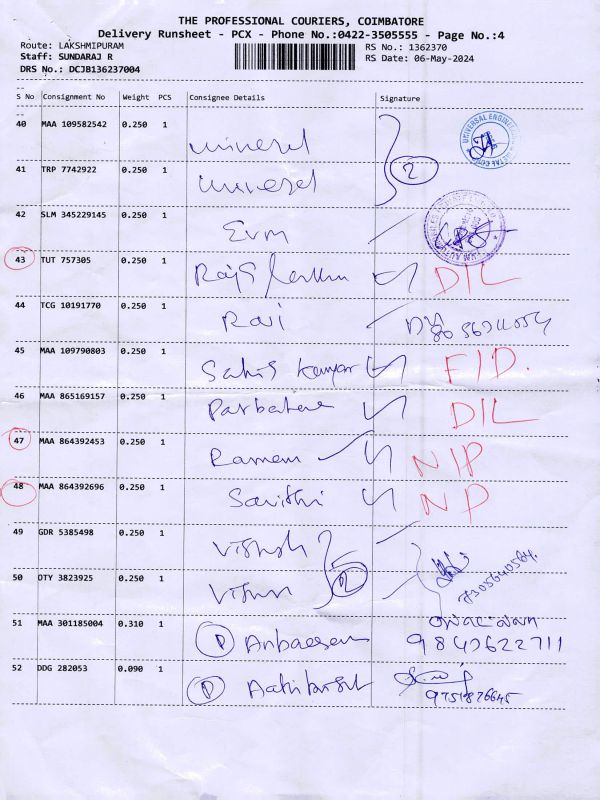 THE PROFESSIONAL COURIERS, COIMBATORE
Delivery Runsheet - PCX - Phone No.:0422-3505555 - Page No.:4
Route: LAKSHMIPURAM RS No.: 1362370
Staff: SUNDARAJ R RS Date: 06-May-2024
DRS No.: DCJB136237004
S No Consignment No Weight PCS Consignee Details Signature
40 MAA 109582542 0.250 1 universel
2
41 TRP 7742922 0.250 1 universel
42 SLM 345229145 0.250 1 Evm
43 TUT 757305 0.250 1 DIL
44 TCG 10191770 0.250 1 Ravi
45 MAA 109790803 0.250 1 Sahis Kumar F/D.
46 MAA 865169157 0.250 1 DIL
47 MAA 864392453 0.250 1 Ramem N/P
48 MAA 864392696 0.250 1 Savithi NP
49 GDR 5385498 0.250 1
2
50 OTY 3823925 0.250 1
51 MAA 301185004 0.310 1 D
52 DDG 282053 0.090 1 D
9751876645